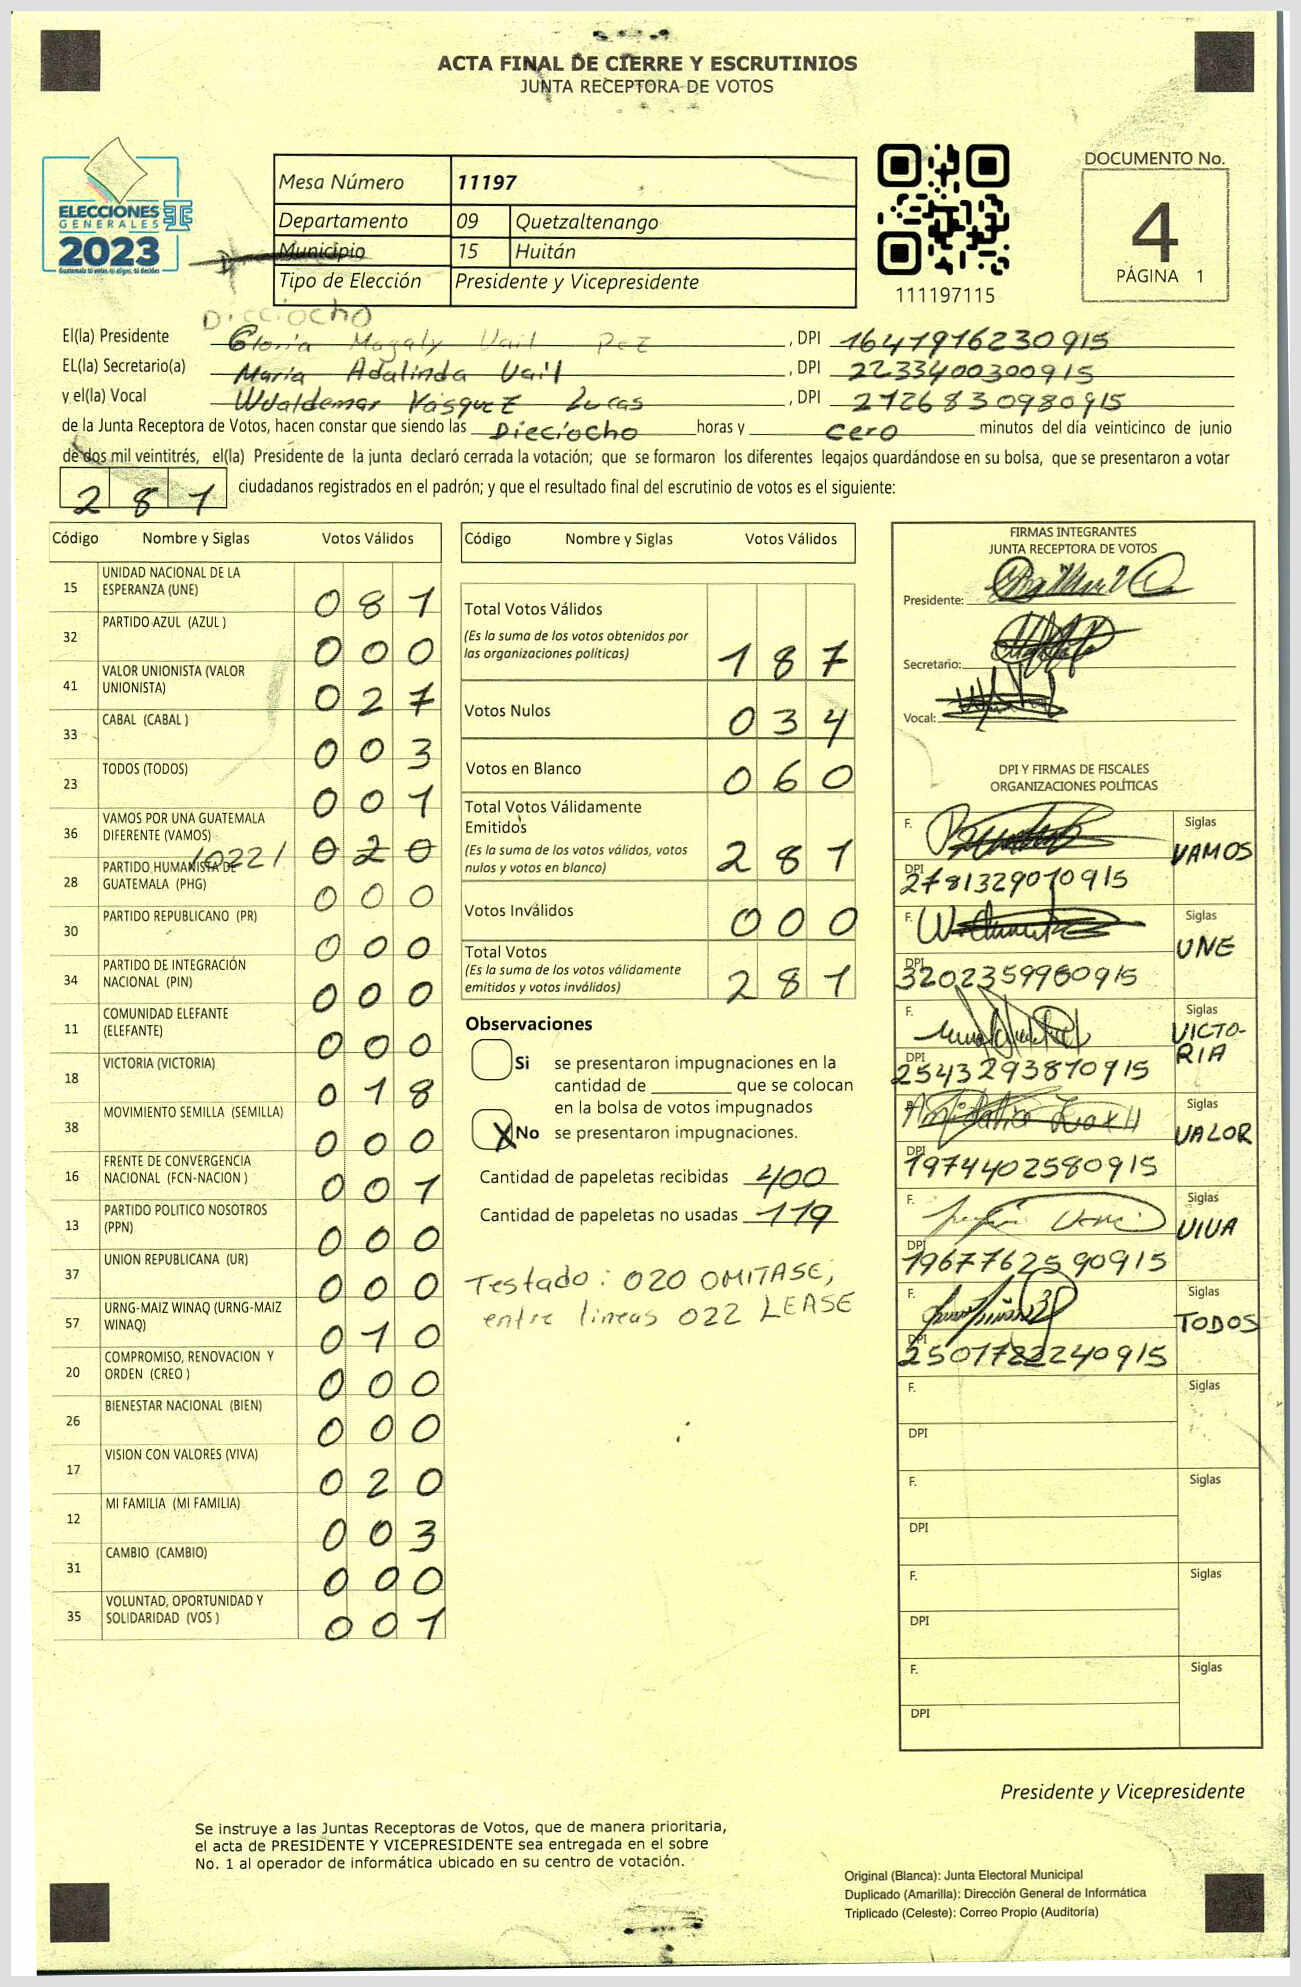 ACTA FINAL DE CIERRE Y ESCRUTINIOS
JUNTA RECEPTORA DE VOTOS
ELECCIONES
GENERALES
2023
Guatemala tú votas, tú eliges, tú decides
Mesa Número 11197
Departamento 09 Quetzaltenango
Municipio 15 Huitán
Tipo de Elección Presidente y Vicepresidente
111197115
DOCUMENTO No.
4
PÁGINA 1
Dieciocho
El(la) Presidente Gloria Magaly Vail Pez, DPI 1641916230915
EL(la) Secretario(a) Maria Adalinda Vail, DPI 2233400300915
y el(la) Vocal Wualdemar Vasquez Lucas, DPI 2126830980915
de la Junta Receptora de Votos, hacen constar que siendo las Dieciocho horas y cero minutos del día veinticinco de junio
de dos mil veintitrés, el(la) Presidente de la junta declaró cerrada la votación; que se formaron los diferentes legajos guardándose en su bolsa, que se presentaron a votar
281 ciudadanos registrados en el padrón; y que el resultado final del escrutinio de votos es el siguiente:
Código Nombre y Siglas Votos Válidos
15 UNIDAD NACIONAL DE LA ESPERANZA (UNE) 081
32 PARTIDO AZUL (AZUL ) 000
41 VALOR UNIONISTA (VALOR UNIONISTA) 027
33 CABAL (CABAL ) 003
23 TODOS (TODOS) 001
36 VAMOS POR UNA GUATEMALA DIFERENTE (VAMOS) /022/ 020
28 PARTIDO HUMANISTA DE GUATEMALA (PHG) 000
30 PARTIDO REPUBLICANO (PR) 000
34 PARTIDO DE INTEGRACIÓN NACIONAL (PIN) 000
11 COMUNIDAD ELEFANTE (ELEFANTE) 000
18 VICTORIA (VICTORIA) 018
38 MOVIMIENTO SEMILLA (SEMILLA) 000
16 FRENTE DE CONVERGENCIA NACIONAL (FCN-NACION ) 001
13 PARTIDO POLITICO NOSOTROS (PPN) 000
37 UNION REPUBLICANA (UR) 000
57 URNG-MAIZ WINAQ (URNG-MAIZ WINAQ) 010
20 COMPROMISO, RENOVACION Y ORDEN (CREO ) 000
26 BIENESTAR NACIONAL (BIEN) 000
17 VISION CON VALORES (VIVA) 020
12 MI FAMILIA (MI FAMILIA) 003
31 CAMBIO (CAMBIO) 000
35 VOLUNTAD, OPORTUNIDAD Y SOLIDARIDAD (VOS ) 001
Código Nombre y Siglas Votos Válidos
Total Votos Válidos 187
(Es la suma de los votos obtenidos por
las organizaciones políticas)
Votos Nulos 034
Votos en Blanco 060
Total Votos Válidamente
Emitidos 281
(Es la suma de los votos válidos, votos
nulos y votos en blanco)
Votos Inválidos 000
Total Votos 281
(Es la suma de los votos válidamente
emitidos y votos inválidos)
Observaciones
Si se presentaron impugnaciones en la
cantidad de ________ que se colocan
en la bolsa de votos impugnados
X No se presentaron impugnaciones.
Cantidad de papeletas recibidas 400
Cantidad de papeletas no usadas 119
Testado: 020 OMITASE;
entre lineas 022 LEASE
FIRMAS INTEGRANTES
JUNTA RECEPTORA DE VOTOS
Presidente:
Secretario:
Vocal:
DPI Y FIRMAS DE FISCALES
ORGANIZACIONES POLÍTICAS
F. Siglas VAMOS
DPI 2781329070915
F. Siglas UNE
DPI 3202359980915
F. Siglas VICTO-
RIA
DPI 2543293870915
Siglas VALOR
DPI 1974402580915
F. Siglas VIVA
DPI 1967762590915
F. Siglas TODOS
DPI 2501782240915
F. Siglas
DPI
F. Siglas
DPI
F. Siglas
DPI
F. Siglas
DPI
Presidente y Vicepresidente
Se instruye a las Juntas Receptoras de Votos, que de manera prioritaria,
el acta de PRESIDENTE Y VICEPRESIDENTE sea entregada en el sobre
No. 1 al operador de informática ubicado en su centro de votación.
Original (Blanca): Junta Electoral Municipal
Duplicado (Amarilla): Dirección General de Informática
Triplicado (Celeste): Correo Propio (Auditoría)